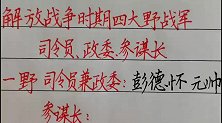 解放战争时期四大野战军
司令员、政委、参谋长
一野 司令员兼政委：彭德怀 元帅
参谋长：